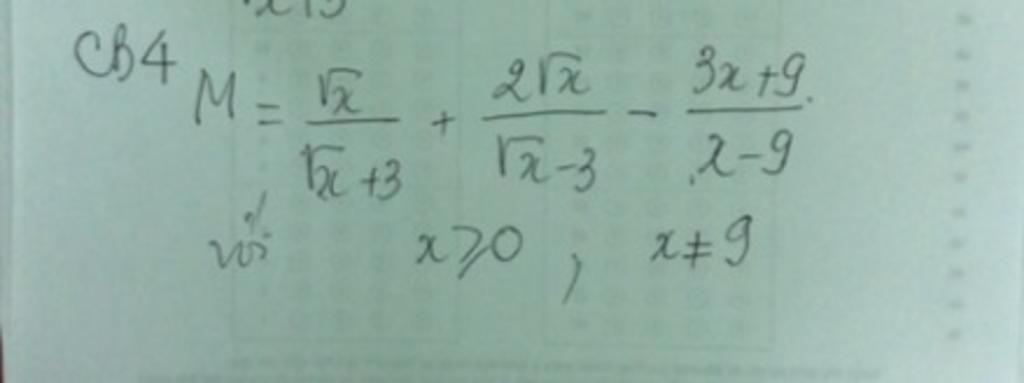 CB4 M = \frac{\sqrt{x}}{\sqrt{x}+3} + \frac{2\sqrt{x}}{\sqrt{x}-3} - \frac{3x+9}{x-9}
với x ⩾ 0 ; x ≠ 9